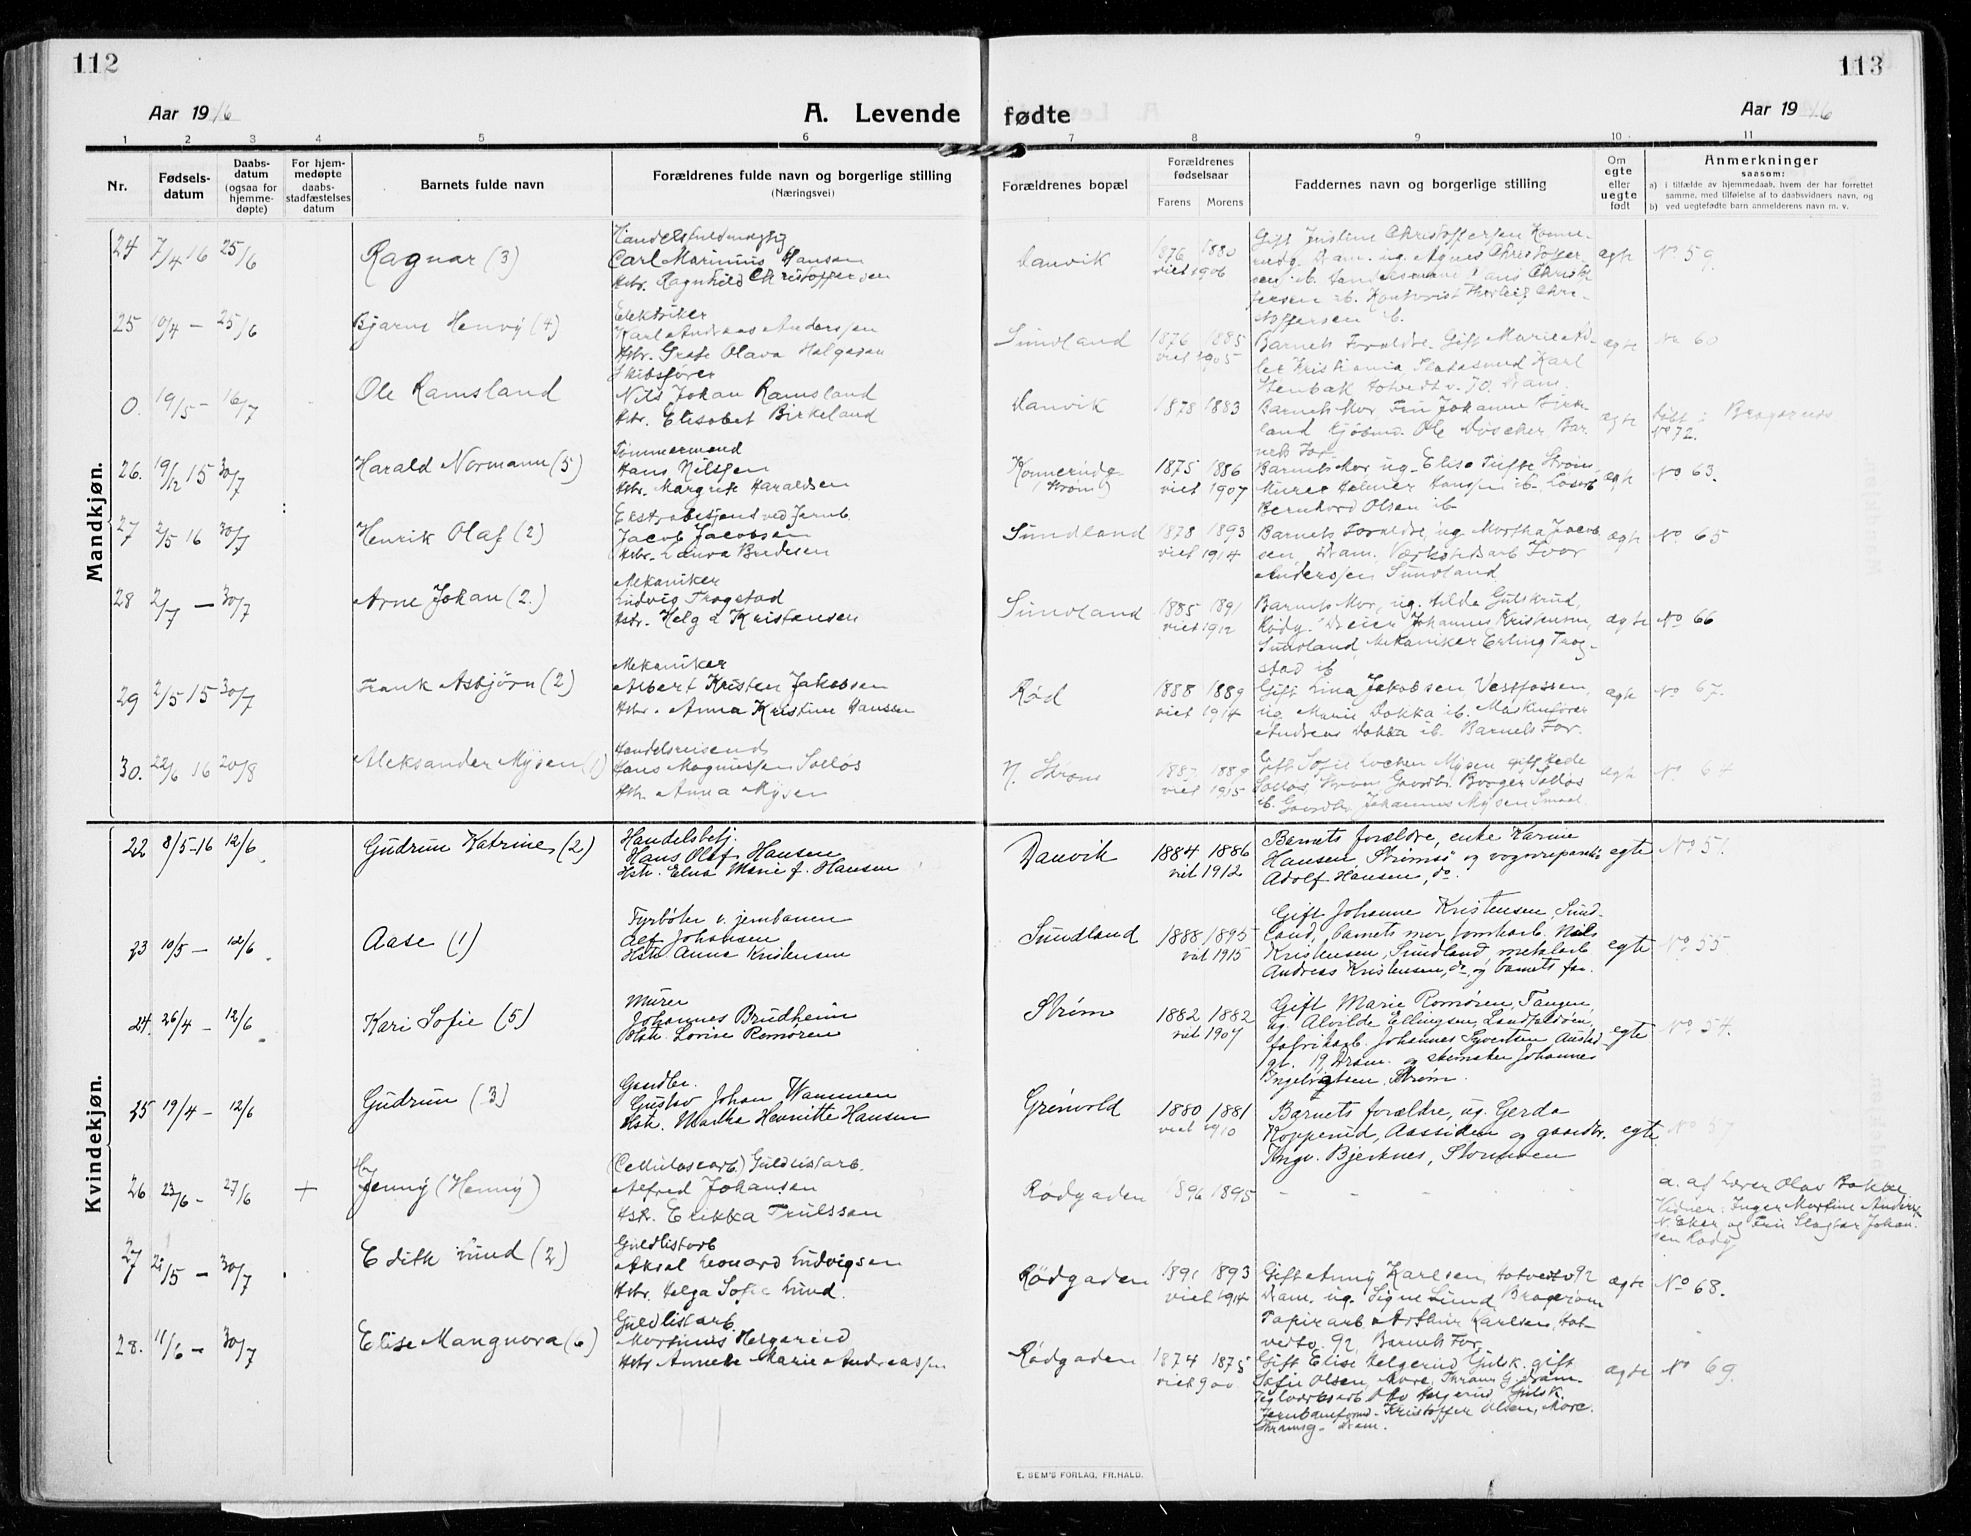 112
113
Aar 1916
A. Levende fødte
Aar 1916
1 2 3 4 5 6 7 8 9 10 11
Nr.
Fødsels-
datum
Daabs-
datum
(ogsaa for
hjemme-
døpte)
For hjem-
medøpte
daabs-
stadfæstelses
datum
Barnets fulde navn
Forældrenes fulde navn og borgerlige stilling
(Næringsvei)
Forældrenes bopæl
Forældrenes
fødselsaar
Farens Morens
Faddernes navn og borgerlige stilling
Om
egte
eller
uegte
født
Anmerkninger
saasom:
a) i tilfælde av hjemmedaab, hvem der har forrettet
samme, med tilføielse af to daabsvidners navn, og
b) ved uegtefødte barn anmelderens navn m. v.
Mandkjøn.
24 7/4 16 25/6
Ragnar (3)
Handelsfuldmægtig
Carl Marinius Hansen
Hstr. Ragnhild Christoffersen
Danvik
1876 1880
viet 1906
Gift Justine Christoffersen
ægte
No 59.
25 10/4 — 25/6
Bjarne Henry (4)
Elektriker
Karl Andreas Anderssen
Hstr. Grete Olava Helgesen
Sundland
1876 1885
viet 1905
Barnets Forældre. Gift Marie
Kristiania
Karl
Stenbæk totvedtv. 70 Dram.
ægte
No 60
0. 19/5 — 16/7
Ole Ramsland
Skibsfører
Nils Johan Ramsland
Hstr. Elisabet Birkeland
Danvik
1878 1883
Barnets Mor, Fru Johanne Birke-
land Kjøbmd. Ole Løscher Bar-
nets Far
ægte
Døbt i Bragernes
No 72.
26. 19/12 15 30/7
Harald Normann (5)
Tømmermand
Hans Nilssen
Hstr. Margrete Haraldsen
Konnerudg.
(Strøm)
1875 1886
viet 1907
Barnets Mor ug. Elise Tufte Strøm,
Murer Helmer Hanssen ib.
Bernhard Olsen ib
ægte
No 63.
27 2/5 16 30/7
Henrik Olaf (2)
Ekstrabetjent ved Jernb.
Jacob Jacobsen
Hstr. Laura Bredesen
Sundland
1878 1893
viet 1914
Barnets Forældre, ug Martha Jacob-
sen, Dram. Værkstedsarb Ivar
Anderssen, Sundland
ægte
No 65
28 2/7 — 30/7
Arne Johan (2.)
Mekaniker
Ludvig Trogstad
Hstr. Helga Kristensen
Sundland
1885 1891
viet 1912
Barnets Mor, ug. Hilda Gulskrud,
Rødg. Dreier Johannes Kristensen,
Sundland, Mekaniker Erling Trog-
stad ib
ægte
No 66
29 2/5 15 30/7
Frank Asbjørn (2)
Mekaniker
Albert Kristen Jakobsen
Hstr. Anna Kristine Hanssen
Rød
1888 1889
viet 1914
Gift Lina Jakobsen, Vestfossen,
ug. Marie Dokka ib. Maskinfører
Andreas Dokka ib. Barnets Far.
ægte
No 67.
30. 22/6 16 20/8
Aleksander Mysen (1)
Handelsreisend
Hans Magnussen Solløs
Hstr. Anna Mysen
N. Strøm
1887 1889
viet 1915
Gift Sofie Lochen Mysen gift
Solløs, Strøm, Gaardbr. Borger Solløs
ib. Gaardbr. Johannes Mysen
ægte
No 64
Kvindekjøn.
22 8/5-16 12/6
Gudrun Katrine (2)
Handelsbetj.
Hans Olaf Hansen
Hstr. Elna Marie f. Hansen
Danvik
1884 1886
viet 1912
Barnets forældre, enke Karine
Hansen, Strømsø og vognreparatør
Adolf Hansen, do.
egte
No 51
23 10/5 — 12/6
Aase (1)
Fyrbøter v. jernbanen
Alf Johansen
Hstr. Anna Kristensen
Sundland
1888 1895
viet 1915
Gift Johanne Kristensen, Sund-
land, barnets mor, jernbarb. Nils
Kristensen, Sundland, metalarb.
Andreas Kristensen, do, og barnets far.
egte
No 55
24. 26/4 — 12/6
Kari Sofie (5)
Murer
Johannes Brudheim
Hstr. Lovise Romøren
Strøm
1882 1882
viet 1907
Gift Marie Romøren, Tangen,
ug. Alvilde Ellingsen, Landfaldøen,
fabrikarb. Johannes Syvertsen Austad-
gt. 19, Dram. og skomaker Johannes
Ingebrigtsen, Strøm.
egte
No 54.
25 19/4 — 12/6
Gudrun (3)
Gaardbr.
Gustav Johan Wammen
Hstr. Martha Henriette Hansen
Grønvold
1880 1881
viet 1910
Barnets forældre, ug. Gerda
Kopperud, Aassiden og gaardbr.
Ingv. Bjerknes,
egte
No 57
26 23/6 — 27/6 +
Jenny (Henny)
(Cellulosearb.) Guldlistarb.
Alfred Johansen
Hstr. Erikka Trulssen
Rødgaden
1896 1895
- - - -
a. af Lærer Olav Bakke
Vidner: Inger Martine Anders
N. Eker og Fru Slagter Johan-
sen Rødg
27 21/5 — 30/7
Edith Lund (2)
Guldlistarb
Aksel Leonard Ludvigsen
Hstr. Helga Sofie Lund.
Rødgaden
1891 1893
viet 1914
Gift Anny Karlsen, totvedtv 92
Dram. ug. Signe Lund, Bragerøen
Papirarb Arthur Karlsen, tot-
vedtv. 92, Barnets Far
ægte
No 68.
28. 11/6 — 30/7
Elise Mangnora (6)
Guldlistarb.
Martinius Helgerud
Hstr Annette Marie Andreassen
Rødgaden
1874 1875
viet 900
Gift Elise Helgerud Gulsk. gift
Sofie Olsen, More, Thrams G. Dram.
Teglværksarb Otto Helgerud, Gulsk.
Jernbaneform. Kristoffer Olsen, More.
Thramsg. Dram.
ægte
No 69.
E. SEM'S FORLAG, FR.HALD.